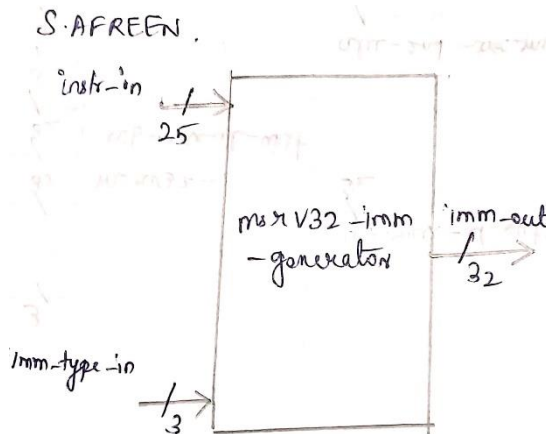 S.AFREEN.
instr-in
25
msrV32-imm
-generator
imm-out
32
imm-type-in
3